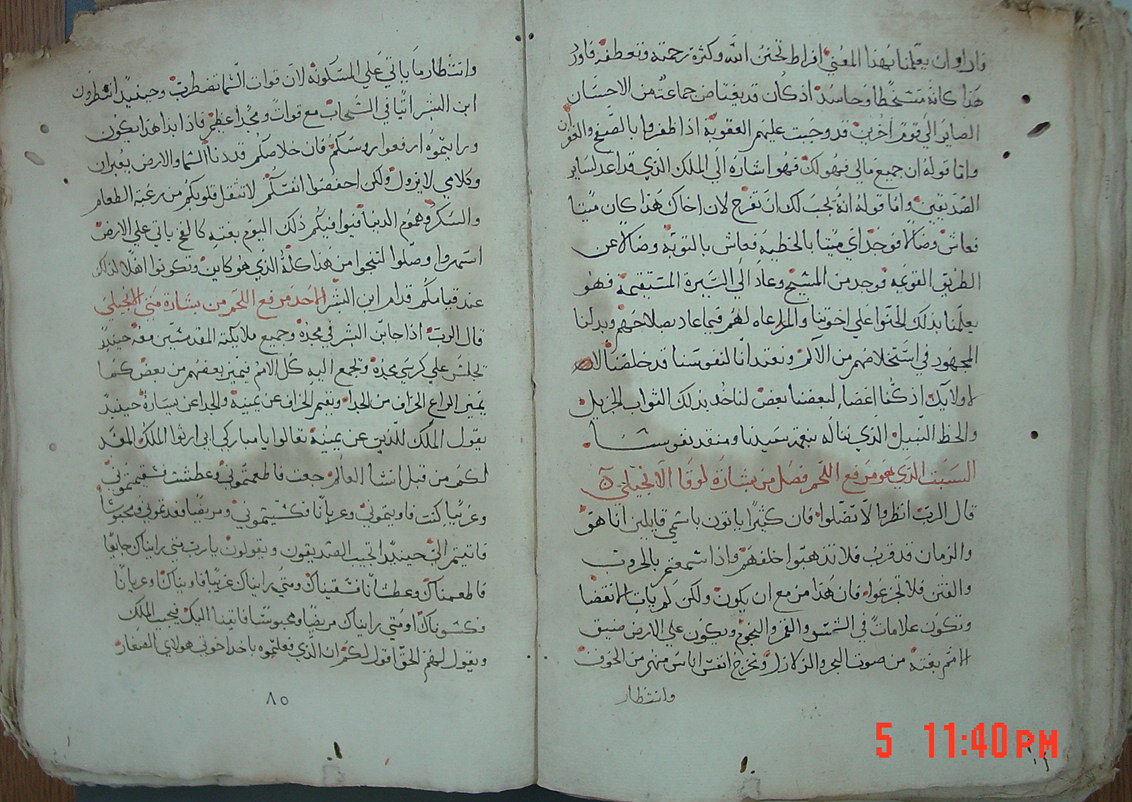 فارادان يعلمنا بهذا المعني افراط تحنن الله وكثرة رحمته وتعطفه فاورد
هذا كانه متسخطا وحاسد اذ كان قد يغتاض جماعة من الاحسان
الصاير الي قوم اخرين قد وجبت عليهم العقوبة اذا ظفروا بالصفح والغفران
واما قوله ان جميع مالي فهو لك فهو اشارة الي الملك الذي قد اعد لساير
الصديقين واما قوله انه يجب لك ان تفرح لان اخاك هذا كان ميتا
فعاش وضالا فوجد اي ميتا بالخطية فعاش بالتوبة وضالا عن
الطريق القويمة فوجد من المسيح وعاد الي السيرة المستقيمة فهو
يعلمنا بذلك الحنوا علي اخوتنا والمراعاه لهم فيما عاد بصلاحهم وبذلنا
المجهود في استخلاصهم من الالام ونعتد انا لنفوسنا قد خلصنا
اولايك اذ كنا اعضاء لبعضنا بعض لناخذ بذلك الثواب الجزيل
والحظ النبيل الذي نناله بنعمة سيدنا ومنقذ نفوسنا
السبت الذي هو مرفع اللحم فصل من بشارة لوقا الانجيلي
قال الرب انظروا لا تضلوا فان كثيرا ياتون باسمي قايلين انا هو
والزمان قد قرب فلا تذهبوا خلفهم واذا سمعتم بالحروب
والفتن فلا تجزعوا فان هذا مزمع ان يكون ولكن لم يات الانقضا
وتكون علامات في الشمس والقمر والنجوم ويكون علي الارض ضيق
الامم بغته من صوت البحر والزلازل وتخرج انفس اناس منهم من الخوف
وانتظار
وانتظار ما ياتي علي المسكونة لان قوات السما تضطرب وحينيذ انظرون
ابن البشر اتيا في السحاب مع قوات ومجد اعظم فاذا بدا هذا يكون
ورايتموه ارفعوا روسكم فان خلاصكم قد دنا السما والارض يعبران
وكلامي لا يزول ولكن احفضوا انفسكم لا تثقل قلوبكم من رغبة الطعام
والسكر وهموم الدنيا فيوافيكم ذلك اليوم بغته كالفخ ياتي علي الارض
اسهروا وصلوا لتنجوا من هذا كله الذي هو كاين وتكونوا اهلا لذلك
عند قيامكم قدام ابن البشر الاحد مرفع اللحم من بشارة متي الانجيلي
قال الرب اذا جا ابن البشر في مجده وجميع ملايكته المقدسين معه حينيذ
يجلس علي كرسي مجده وتجمع اليه كل الامم فيميز بعضهم من بعض كما
يميز الراعي الخراف من الجدا ويقيم الخراف عن يمينه والجدا عن يساره حينيذ
يقول الملك للذين عن يمينه تعالوا يا مباركي ابي ارثوا الملك المعد
لكم من قبل انشا العالم جعت فاطعمتموني وعطشت فسقيتموني
وغريبا كنت فاويتموني وعريانا فكسيتموني ومريضا فعدتموني ومحبوسا
فاتيتم الي حينيذ اجيب الصديقون ويقولون يارب متي رايناك جايعا
فاطعمناك وعطشانا فسقيناك ومتي رايناك غريبا فاويناك او عريانا
فكسوناك او متي رايناك مريضا ومحبوسا فاتينا اليك فيجيب الملك
ويقول لهم الحق اقول لكم ان الذي فعلتموه باحد اخوتي هولاي الصغار
٨٥
5 11:40 PM